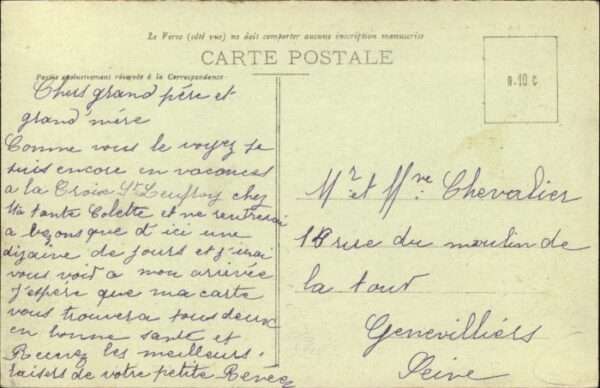 Le Verso (côté vue) ne doit comporter aucune inscription manuscrite
CARTE POSTALE
Partie exclusivement réservée à la Correspondance
n. 10 c
Chers grand père et
grand'mère
Comme vous le voyez je
suis encore en vacances
à la Croix St Leufroy chez
ma tante Colette et ne rentrerai
a bezons que d'ici une
dizaine de jours et j'irai
vous voir a mon arrivée
J'espère que ma carte
vous trouvera tous deux
en bonne santé et
Recevez les meilleurs
baisers de votre petite Renée
Mr et Mme Chevalier
18 rue du moulin de
la tour
Genevilliers
Seine